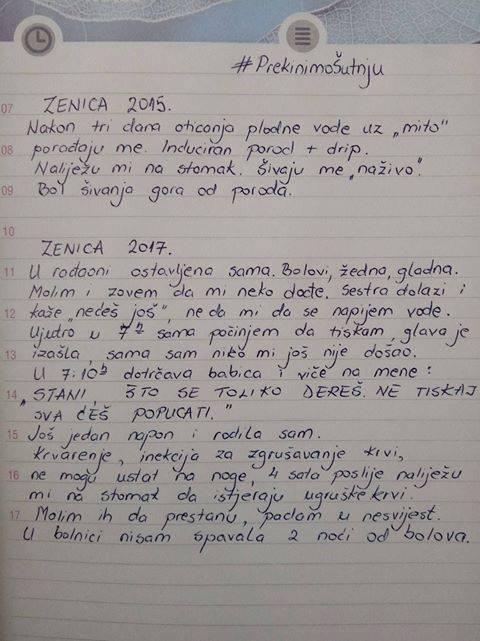 #PrekinimoŠutnju
07 ZENICA 2015.
Nakon tri dana oticanja plodne vode uz „mito"
08 porađaju me. Induciran porod + drip.
Naliježu mi na stomak. Šivaju me „naživo".
09 Bol šivanja gora od poroda.
10
ZENICA 2017.
11 U rađaoni ostavljena sama. Bolovi, žedna, gladna.
Molim i zovem da mi neko dođe. Sestra dolazi i
12 kaže „nećeš još", ne da mi da se napijem vode.
Ujutro u 7h sama počinjem da tiskam, glava je
13 izašla, sama sam niko mi još nije došao.
U 7:10h dotrčava babica i viče na mene:
14 „STANI, ŠTO SE TOLIKO DEREŠ. NE TISKAJ
SVA ĆEŠ POPUCATI."
15 Još jedan napon i rodila sam.
Krvarenje, inekcija za zgrušavanje krvi,
16 ne mogu ustat na noge, 4 sata poslije naliježu
mi na stomak da istjeraju ugruške krvi.
17 Molim ih da prestanu, padam u nesvijest.
U bolnici nisam spavala 2 noći od bolova.